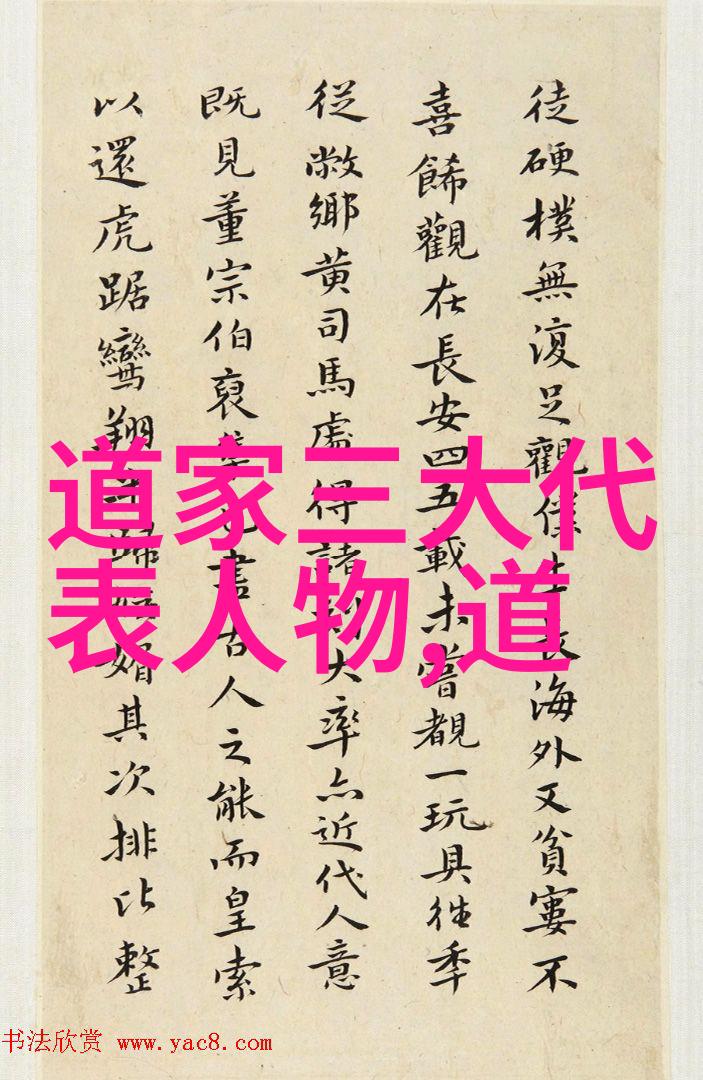 徒硬樸無復足觀僕長海外又貧窶不
喜餙觀在長安四五載未嘗覩一玩具往季
從敝鄉黄司馬處得諸大率亦近代人意
既見董宗伯裒書古人之能而皇索
以還虎踞鸞翔媚其次排比整
道家三大代
表人物,道
书法欣赏 www.yac8.com